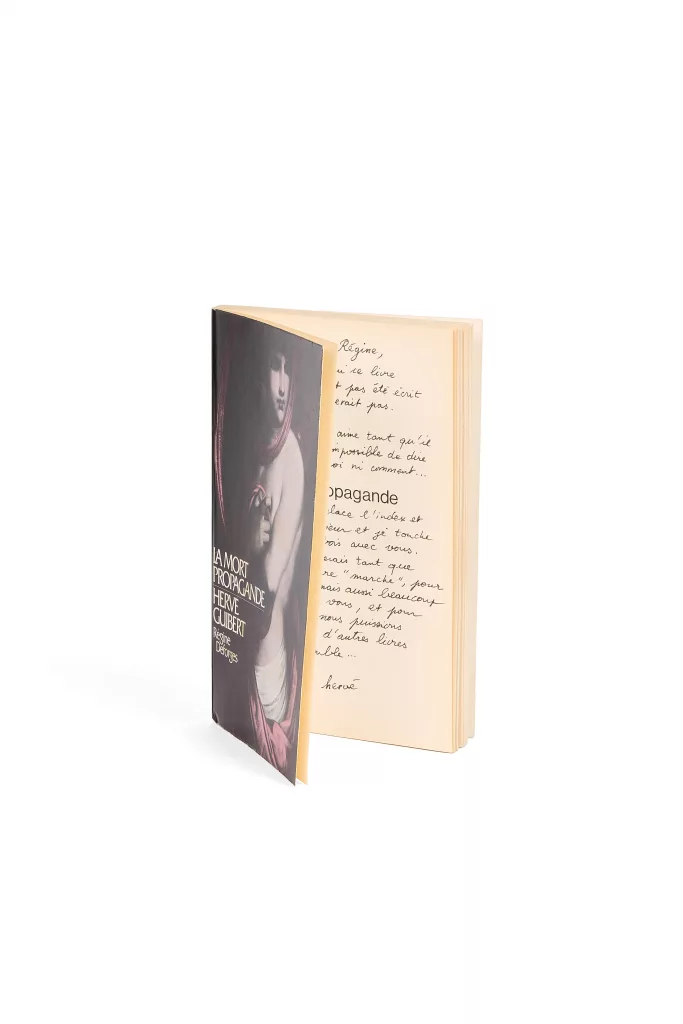 LA MORT
PROPAGANDE
HERVÉ
GUIBERT
Régine
Deforges
Régine,
ce livre
pas été écrit
erait pas.
aime tant qu'il
mpossible de dire
oi ni comment...
opagande
place l'index et
eur et je touche
ois avec vous.
erais tant que
re "marche", pour
mais aussi beaucoup
vous, et pour
nous puissions
d'autres livres
mble...
hervé